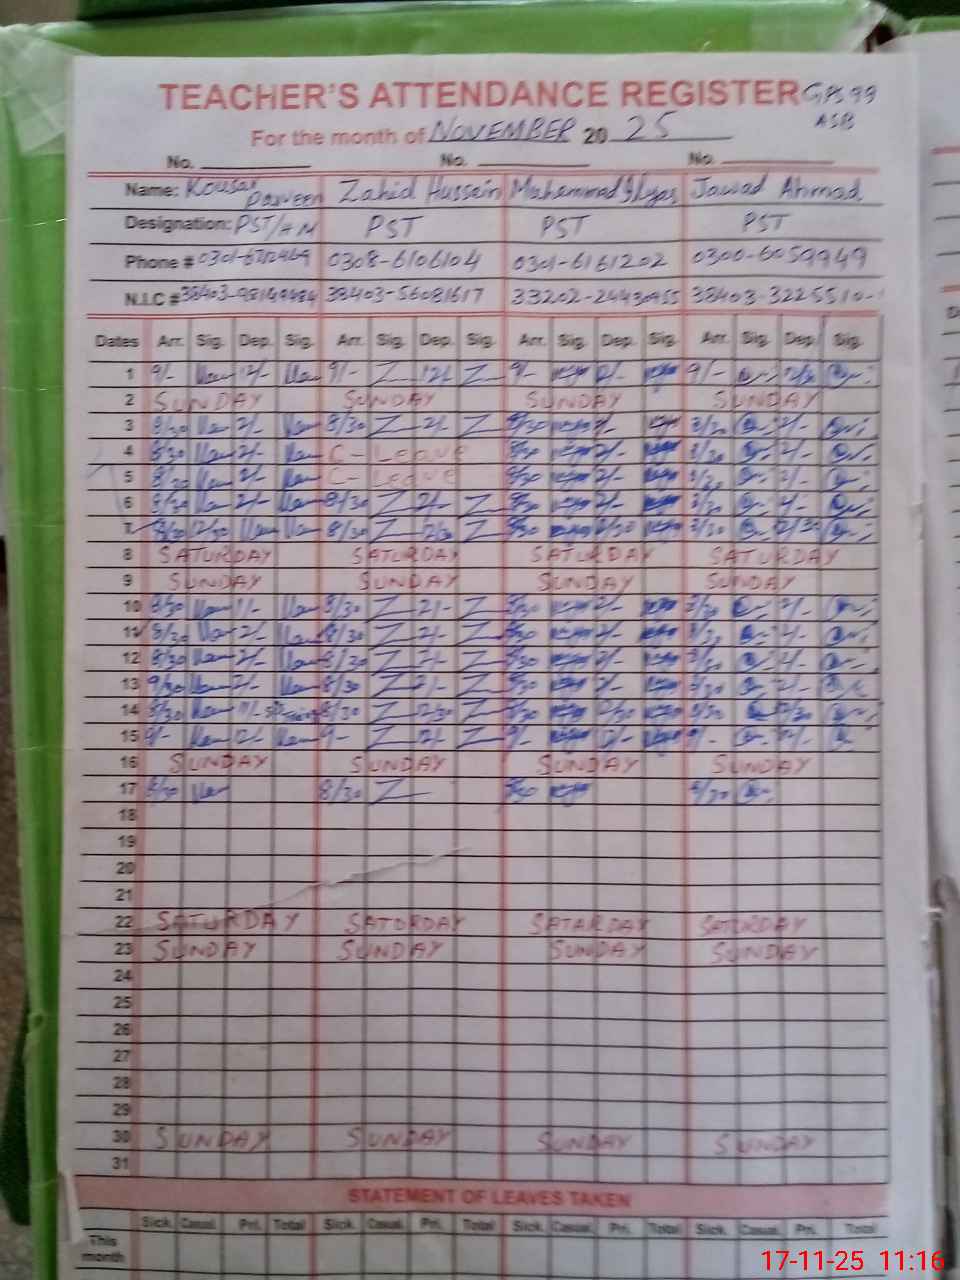 TEACHER'S ATTENDANCE REGISTER GPS 99
ASB
For the month of NOVEMBER 20 25
No. No. No.
Name: Kousar Parveen Zahid Hussain Muhammad Ilyas Jawad Ahmad
Designation: PST/HM PST PST PST
Phone # 0308-6106104 0301-6161202 0300-6059949
N.I.C # 38403-56081617 33202-24430955 38403-3225510-
Dates Arr. Sig. Dep. Sig. Arr. Sig. Dep. Sig. Arr. Sig. Dep. Sig. Arr. Sig. Dep. Sig.
1 9/- 12/- 9/- Z 12/- Z 9/- 9/-
2 SUNDAY SUNDAY SUNDAY SUNDAY
3 8/30 2/- 8/30 Z 2/- Z 8/30 8/30 2/-
4 8/30 2/- C-Leave 8/30 2/- 8/30 2/-
5 8/30 2/- C-Leave 8/30 2/- 8/30 2/-
6 8/30 2/- 8/30 Z 2/- Z 8/30 2/- 8/30
7 8/30 12/30 8/30 Z 12/30 Z 8/30 12/30 8/30 12/30
8 SATURDAY SATURDAY SATURDAY SATURDAY
9 SUNDAY SUNDAY SUNDAY SUNDAY
10 8/30 11/- 8/30 Z 2/- Z 8/30 2/- 8/30 2/-
11 8/30 2/- 8/30 Z 2/- Z 8/30 2/- 8/30 2/-
12 8/30 2/- 8/30 Z 2/- Z 8/30 2/- 8/30
13 9/30 2/- 8/30 Z 2/- Z 8/30 2/- 8/30 2/-
14 8/30 11/- 8/30 Z 12/30 Z 8/30 12/30 8/30 12/30
15 9/- 12/- 9- Z 12/- Z 9/- 12/- 9/- 12/-
16 SUNDAY SUNDAY SUNDAY SUNDAY
17 8/30 8/30 Z 8/30 8/30
18
19
20
21
22 SATURDAY SATURDAY SATARDAY SATURDAY
23 SUNDAY SUNDAY SUNDAY SUNDAY
24
25
26
27
28
29
30 SUNDAY SUNDAY SUNDAY SUNDAY
31
STATEMENT OF LEAVES TAKEN
Sick. Casual. Pri. Total Sick. Casual. Pri. Total Sick. Casual. Pri. Total Sick. Casual. Pri. Total
This month
17-11-25 11:16